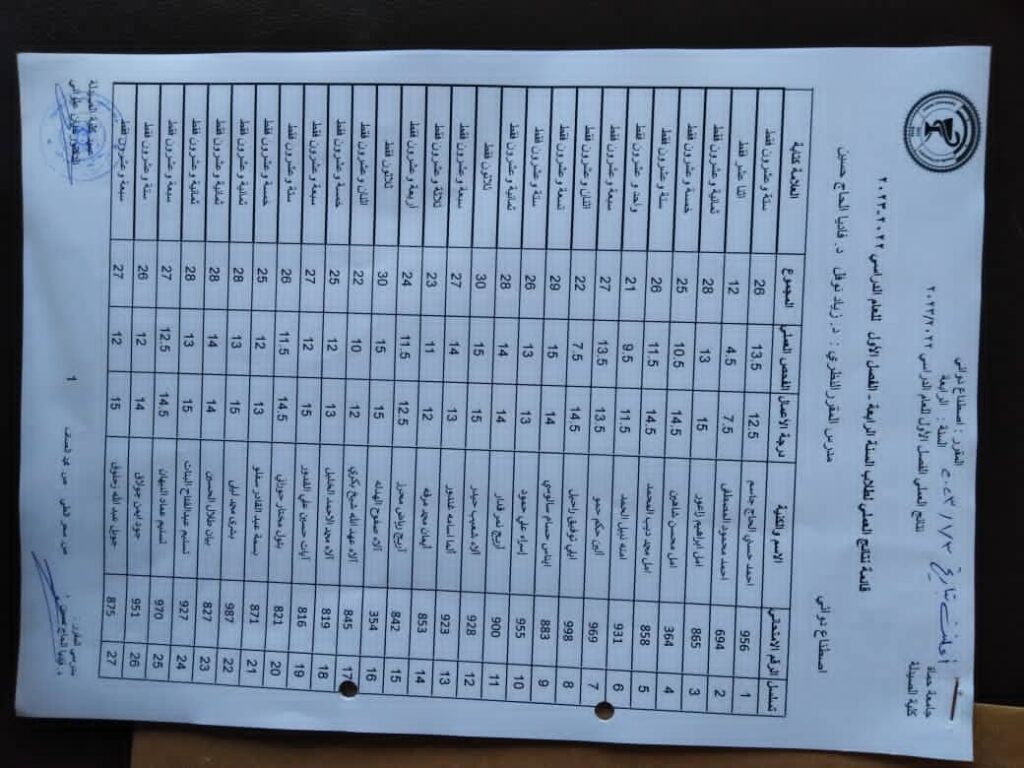 جامعة حماة
كلية الصيدلة
أعلنت بتاريخ ٢٠٢٣/١/٣
المقرر : اصطناع دوائي
السنة : الرابعة
نتائج العملي للفصل الأول للعام الدراسي ٢٠٢٣/٢٠٢٢
قائمة نتائج العملي لطلاب السنة الرابعة - الفصل الأول للعام الدراسي ٢٠٢٢-٢٠٢٣
اصطناع دوائي مدرس المقرر النظري : د. زياد نوفل د. فاديا الحاج حسين
تسلسل الرقم الامتحاني الاسم والكنية درجة الاعمال الفحص العملي المجموع العلامة كتابة
1 956 احمد حسني الحاج جاسم 12.5 13.5 26 ستة و عشرون فقط
2 694 احمد محمود المصطفى 7.5 4.5 12 اثنا عشر فقط
3 865 امل ابراهيم زاعور 15 13 28 ثمانية و عشرون فقط
4 364 امل محسن شاهين 14.5 10.5 25 خمسة و عشرون فقط
5 858 امل محمد ديب المحمد 14.5 11.5 26 ستة و عشرون فقط
6 931 امنه نبيل الحمد 11.5 9.5 21 واحد و عشرون فقط
7 969 الين حكم حمو 13.5 13.5 27 سبعة و عشرون فقط
8 998 ايلي توفيق راحيل 14.5 7.5 22 اثنان و عشرون فقط
9 883 ايناس حسام سالوسي 14 15 29 تسعة و عشرون فقط
10 955 إسراء علي حمود 13 13 26 ستة و عشرون فقط
11 900 اريج تمر قدار 14 14 28 ثمانية و عشرون فقط
12 928 الاء شعيب حيدر 15 15 30 ثلاثون فقط
13 923 الما اسامه غندور 13 14 27 سبعة و عشرون فقط
14 853 ايمان محمد عرفه 12 11 23 ثلاثة و عشرون فقط
15 842 أريج رياض محرز 12.5 11.5 24 أربعة و عشرون فقط
16 354 آلاء صفوح الهدله 15 15 30 ثلاثون فقط
17 845 آلاء عهد الله شيخ بكري 12 10 22 اثنان و عشرون فقط
18 819 الاء محمد الاحمد الخليل 13 12 25 خمسة و عشرون فقط
19 816 آيات حسين علي القدور 15 12 27 سبعة و عشرون فقط
20 821 بتول مختار حوراني 14.5 11.5 26 ستة و عشرون فقط
21 871 بسمة عبد القادر سفلو 13 12 25 خمسة و عشرون فقط
22 987 بشرى محمد ليلى 15 13 28 ثمانية و عشرون فقط
23 827 بيان طلال الحسين 14 14 28 ثمانية و عشرون فقط
24 927 تسنيم عبدالفتاح البنات 15 13 28 ثمانية و عشرون فقط
25 970 تسنيم عماد النبهان 14.5 12.5 27 سبعة و عشرون فقط
26 951 جود ايمن جولاق 14 12 26 ستة و عشرون فقط
27 875 جويل عبد الله رحلوق 15 12 27 سبعة و عشرون فقط
مدرس المقرر :
د. فاديا الحاج حسين
1
عميد كلية الصيدلة